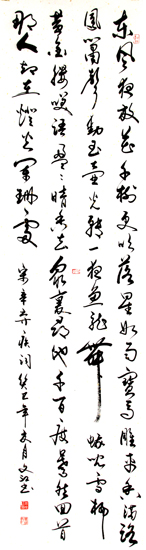 东风夜放花千树更吹落星如雨宝马雕车香满路
凤箫声动玉壶光转一夜鱼龙舞 蛾儿雪柳
黄金缕笑语盈盈暗香去众里寻他千百度蓦然回首
那人却在灯火阑珊处
宋辛弃疾词癸巳年